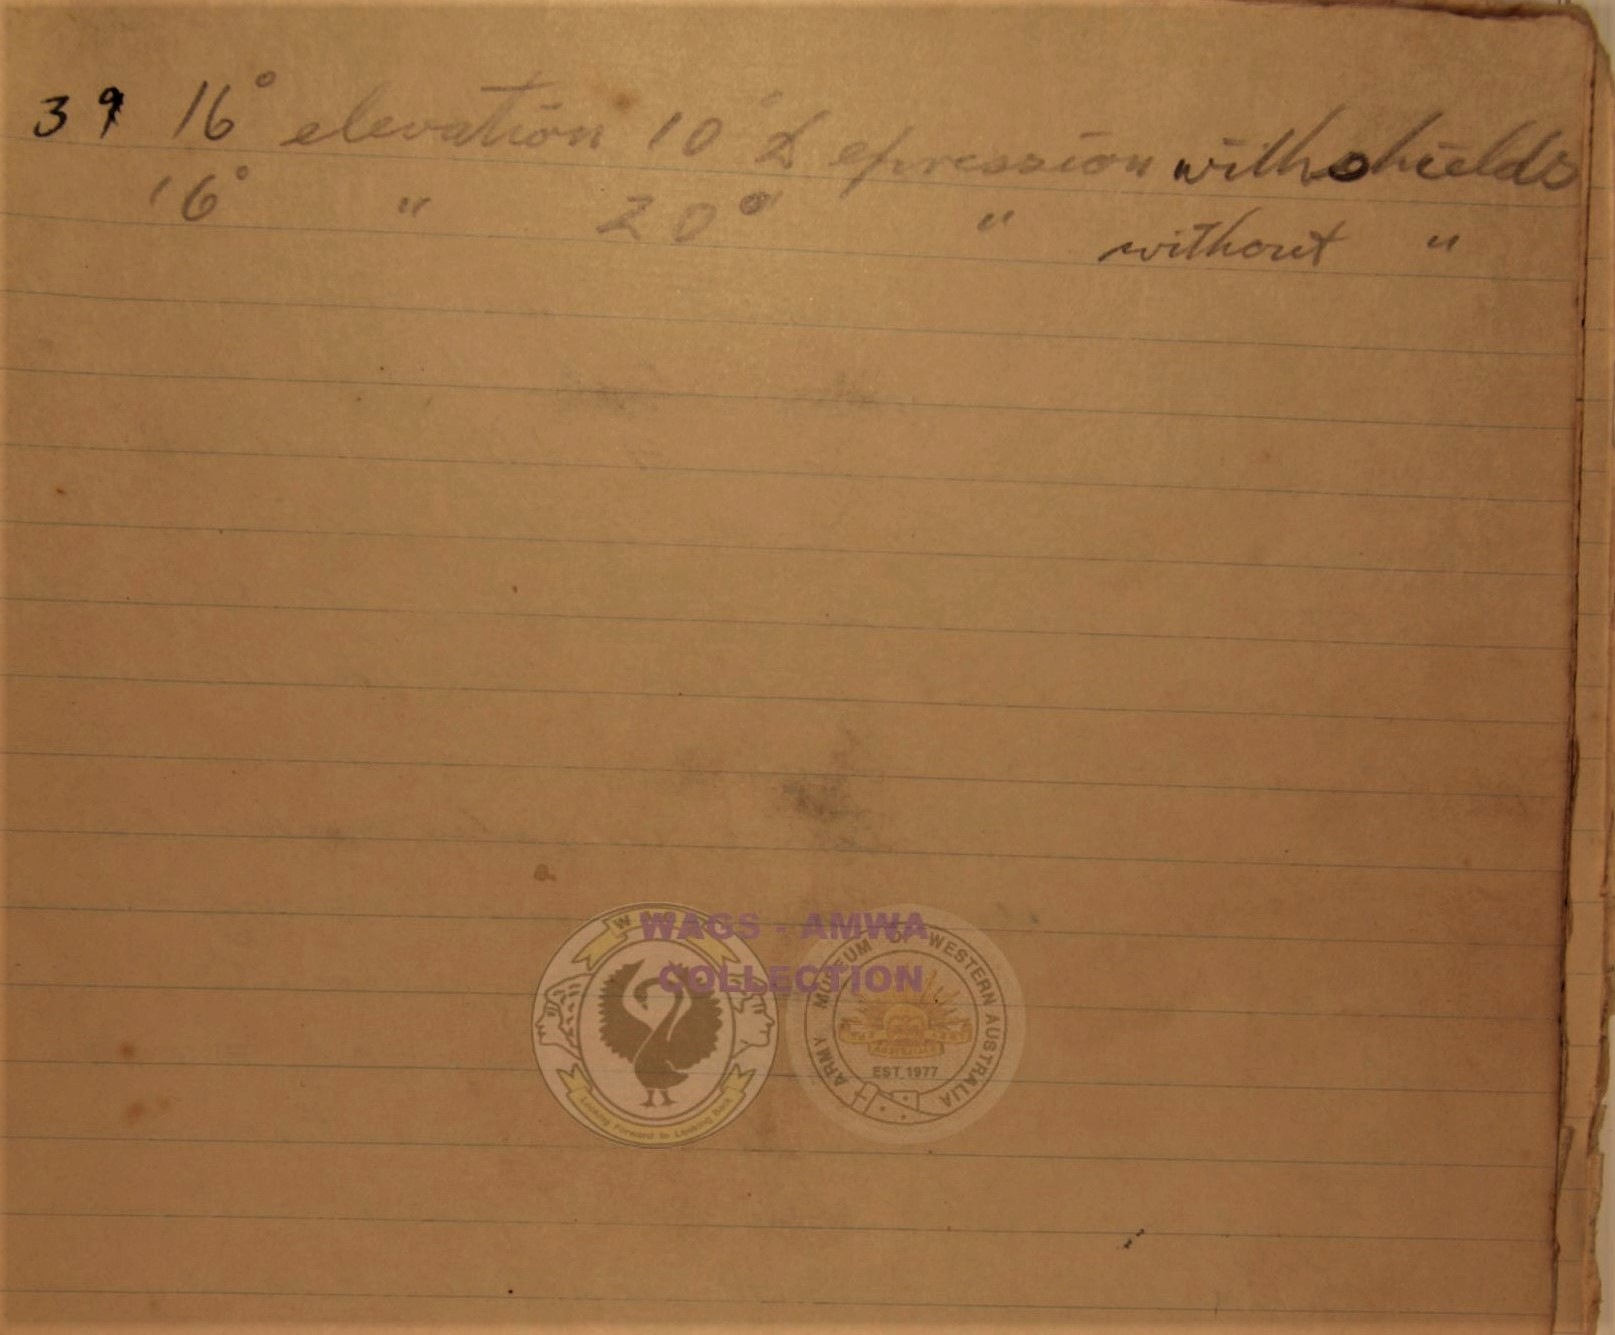 39 16° elevation 10° Depression with shields
16° " 20° " without "
WAGS - AMWA
COLLECTION
ARMY MUSEUM OF WESTERN AUSTRALIA
EST 1977
Looking Forward to Looking Back